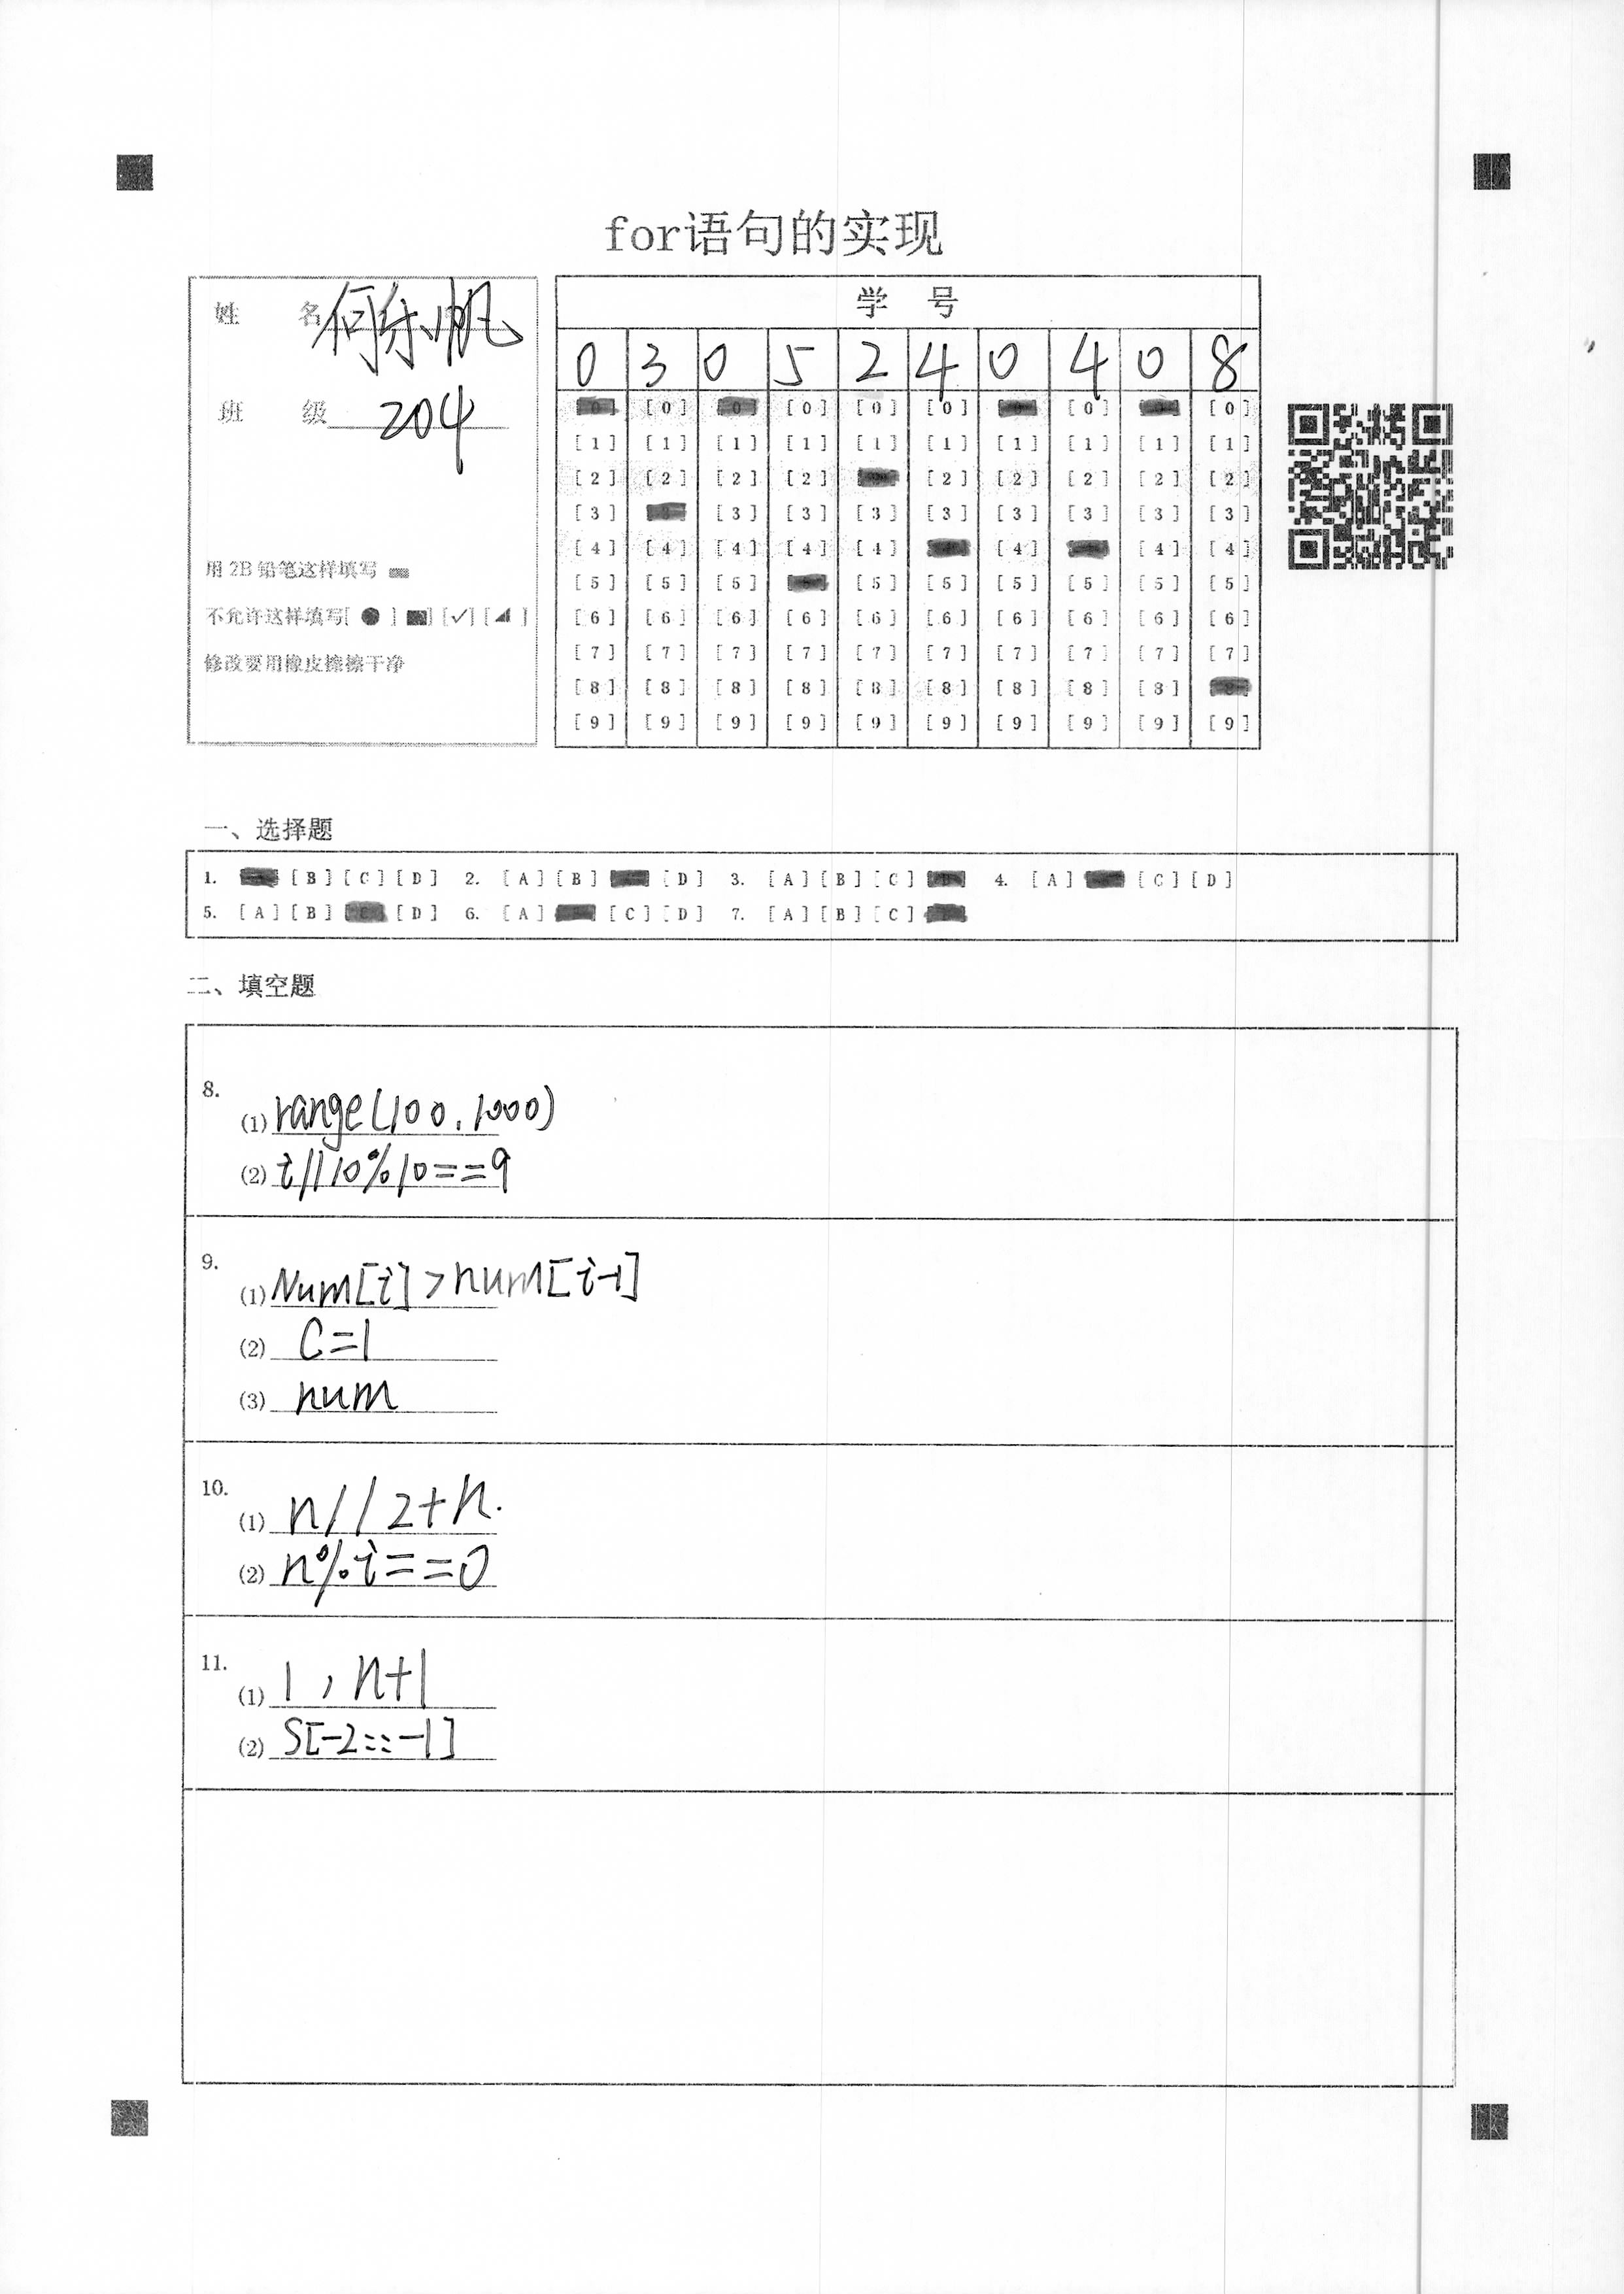 for语句的实现
姓 名 何乐帆
班 级 204
用 2B 铅笔这样填写
不允许这样填写[ ● ] ■] [✓] [◢ ]
修改要用橡皮擦擦干净
学 号
0 3 0 5 2 4 0 4 0 8
[0] [0] [0] [0] [0] [0]
[1] [1] [1] [1] [1] [1] [1] [1] [1] [1]
[2] [2] [2] [2] [2] [2] [2] [2] [2]
[3] [3] [3] [3] [3] [3] [3] [3] [3]
[4] [4] [4] [4] [4] [4] [4] [4]
[5] [5] [5] [5] [5] [5] [5] [5] [5]
[6] [6] [6] [6] [6] [6] [6] [6] [6] [6]
[7] [7] [7] [7] [7] [7] [7] [7] [7] [7]
[8] [8] [8] [8] [8] [8] [8] [8] [8]
[9] [9] [9] [9] [9] [9] [9] [9] [9] [9]
一、选择题
1. [B] [C] [D] 2. [A] [B] [D] 3. [A] [B] [C] 4. [A] [C] [D]
5. [A] [B] [D] 6. [A] [C] [D] 7. [A] [B] [C]
二、填空题
8.
(1) range(100,1000)
(2) i//10%10==9
9.
(1) Num[i]>num[i-1]
(2) C=1
(3) num
10.
(1) n//2+n.
(2) n%i==0
11.
(1) 1,n+1
(2) S[-2::-1]